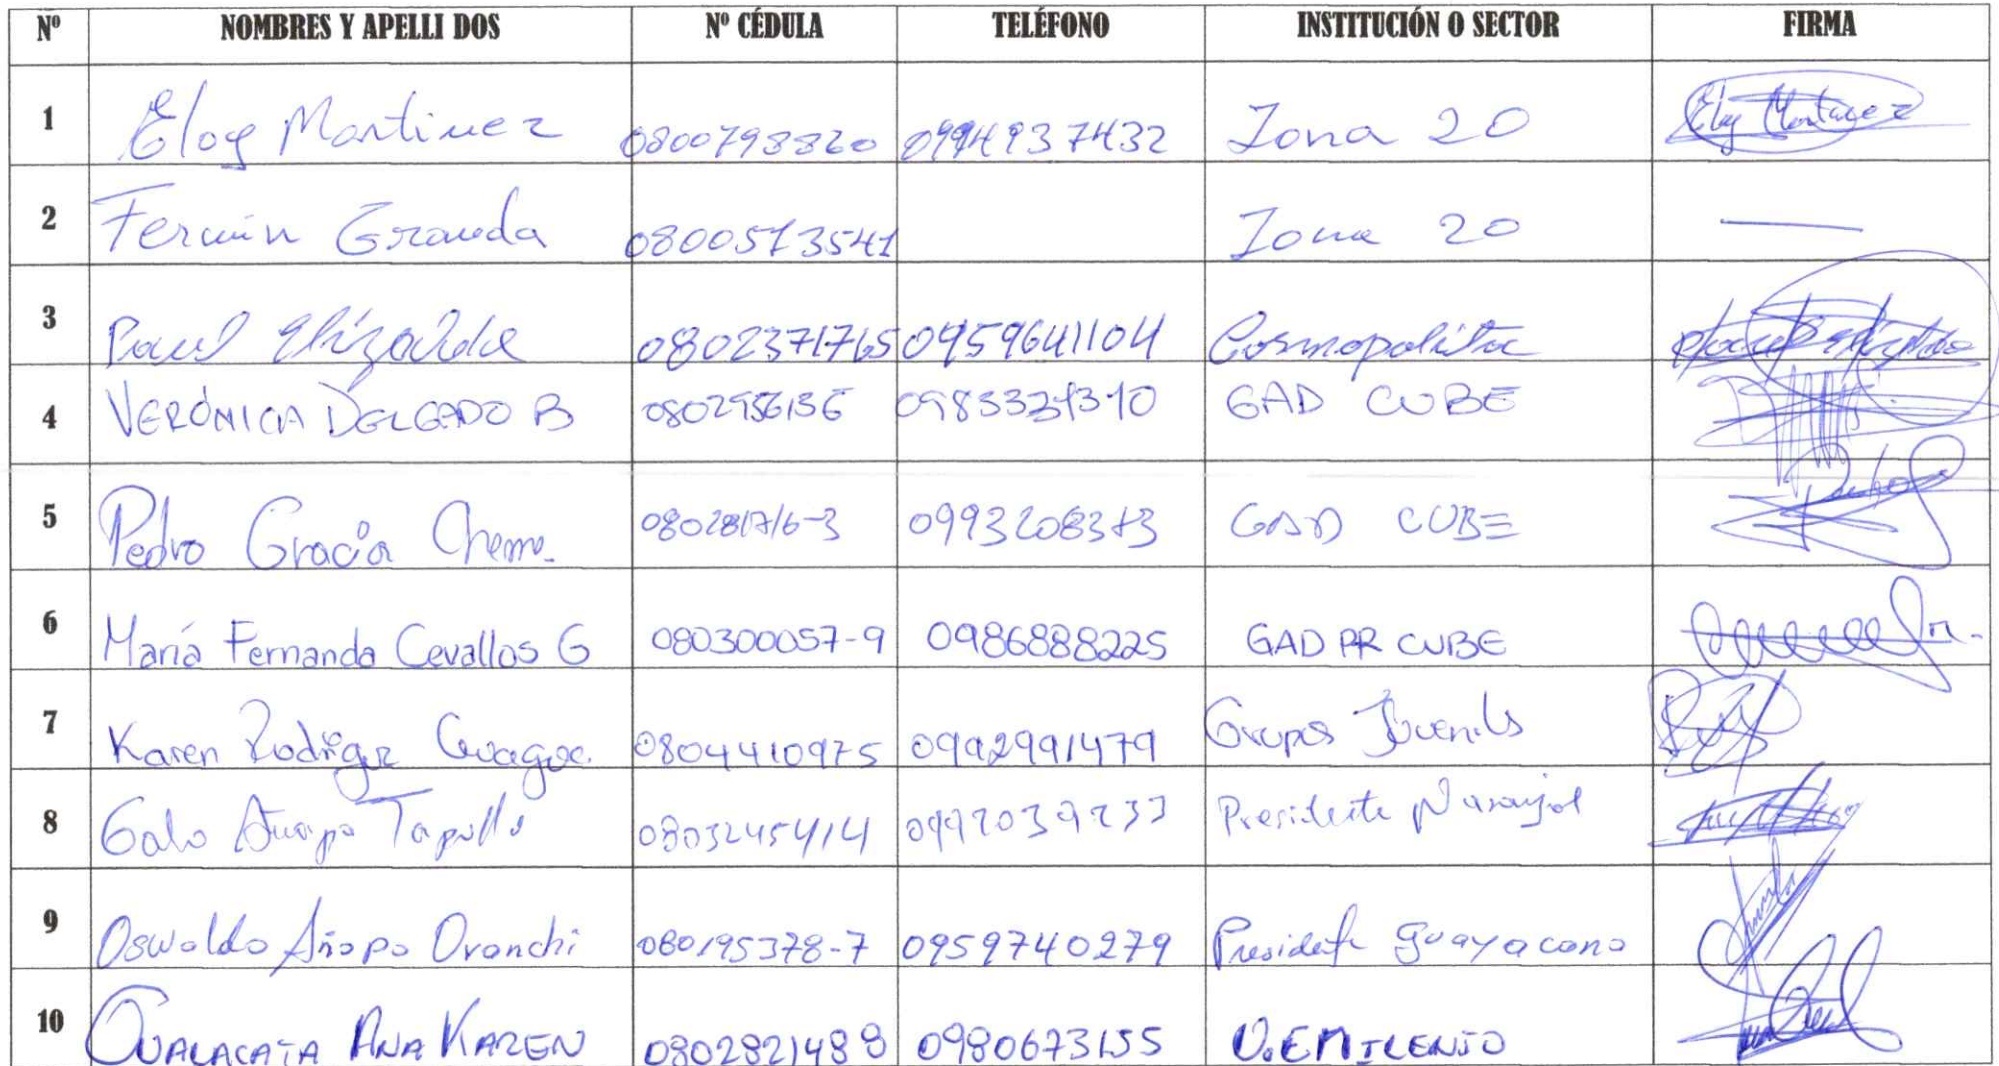 Nº NOMBRES Y APELLI DOS Nº CÉDULA TELÉFONO INSTITUCIÓN O SECTOR FIRMA
1 Eloy Martinez 0800798820 0994937432 Zona 20 Eloy Martinez
2 Fermin Granda 0800513541 Zona 20 —
3 Paul Elizalde 0802371765 0959641104 Cosmopolita
4 VERÓNICA DELGADO B 0802956136 GAD CUBE
5 Pedro Gracia Cheme. 080281716-3 0993208373 GAD CUBE
6 María Fernanda Cevallos G 080300057-9 0986888225 GAD PR CUBE
7 Karen Rodrigez 0804410975 0992991479 Grupos Juvenils
8 Galo Añapa Tapullo 0803245414 0992039233 Presidente Naranjal
9 Oswaldo Añapa 080195378-7 0959740279 Presidente guayacana
10 ANA KAREN 0802821488 0980673155